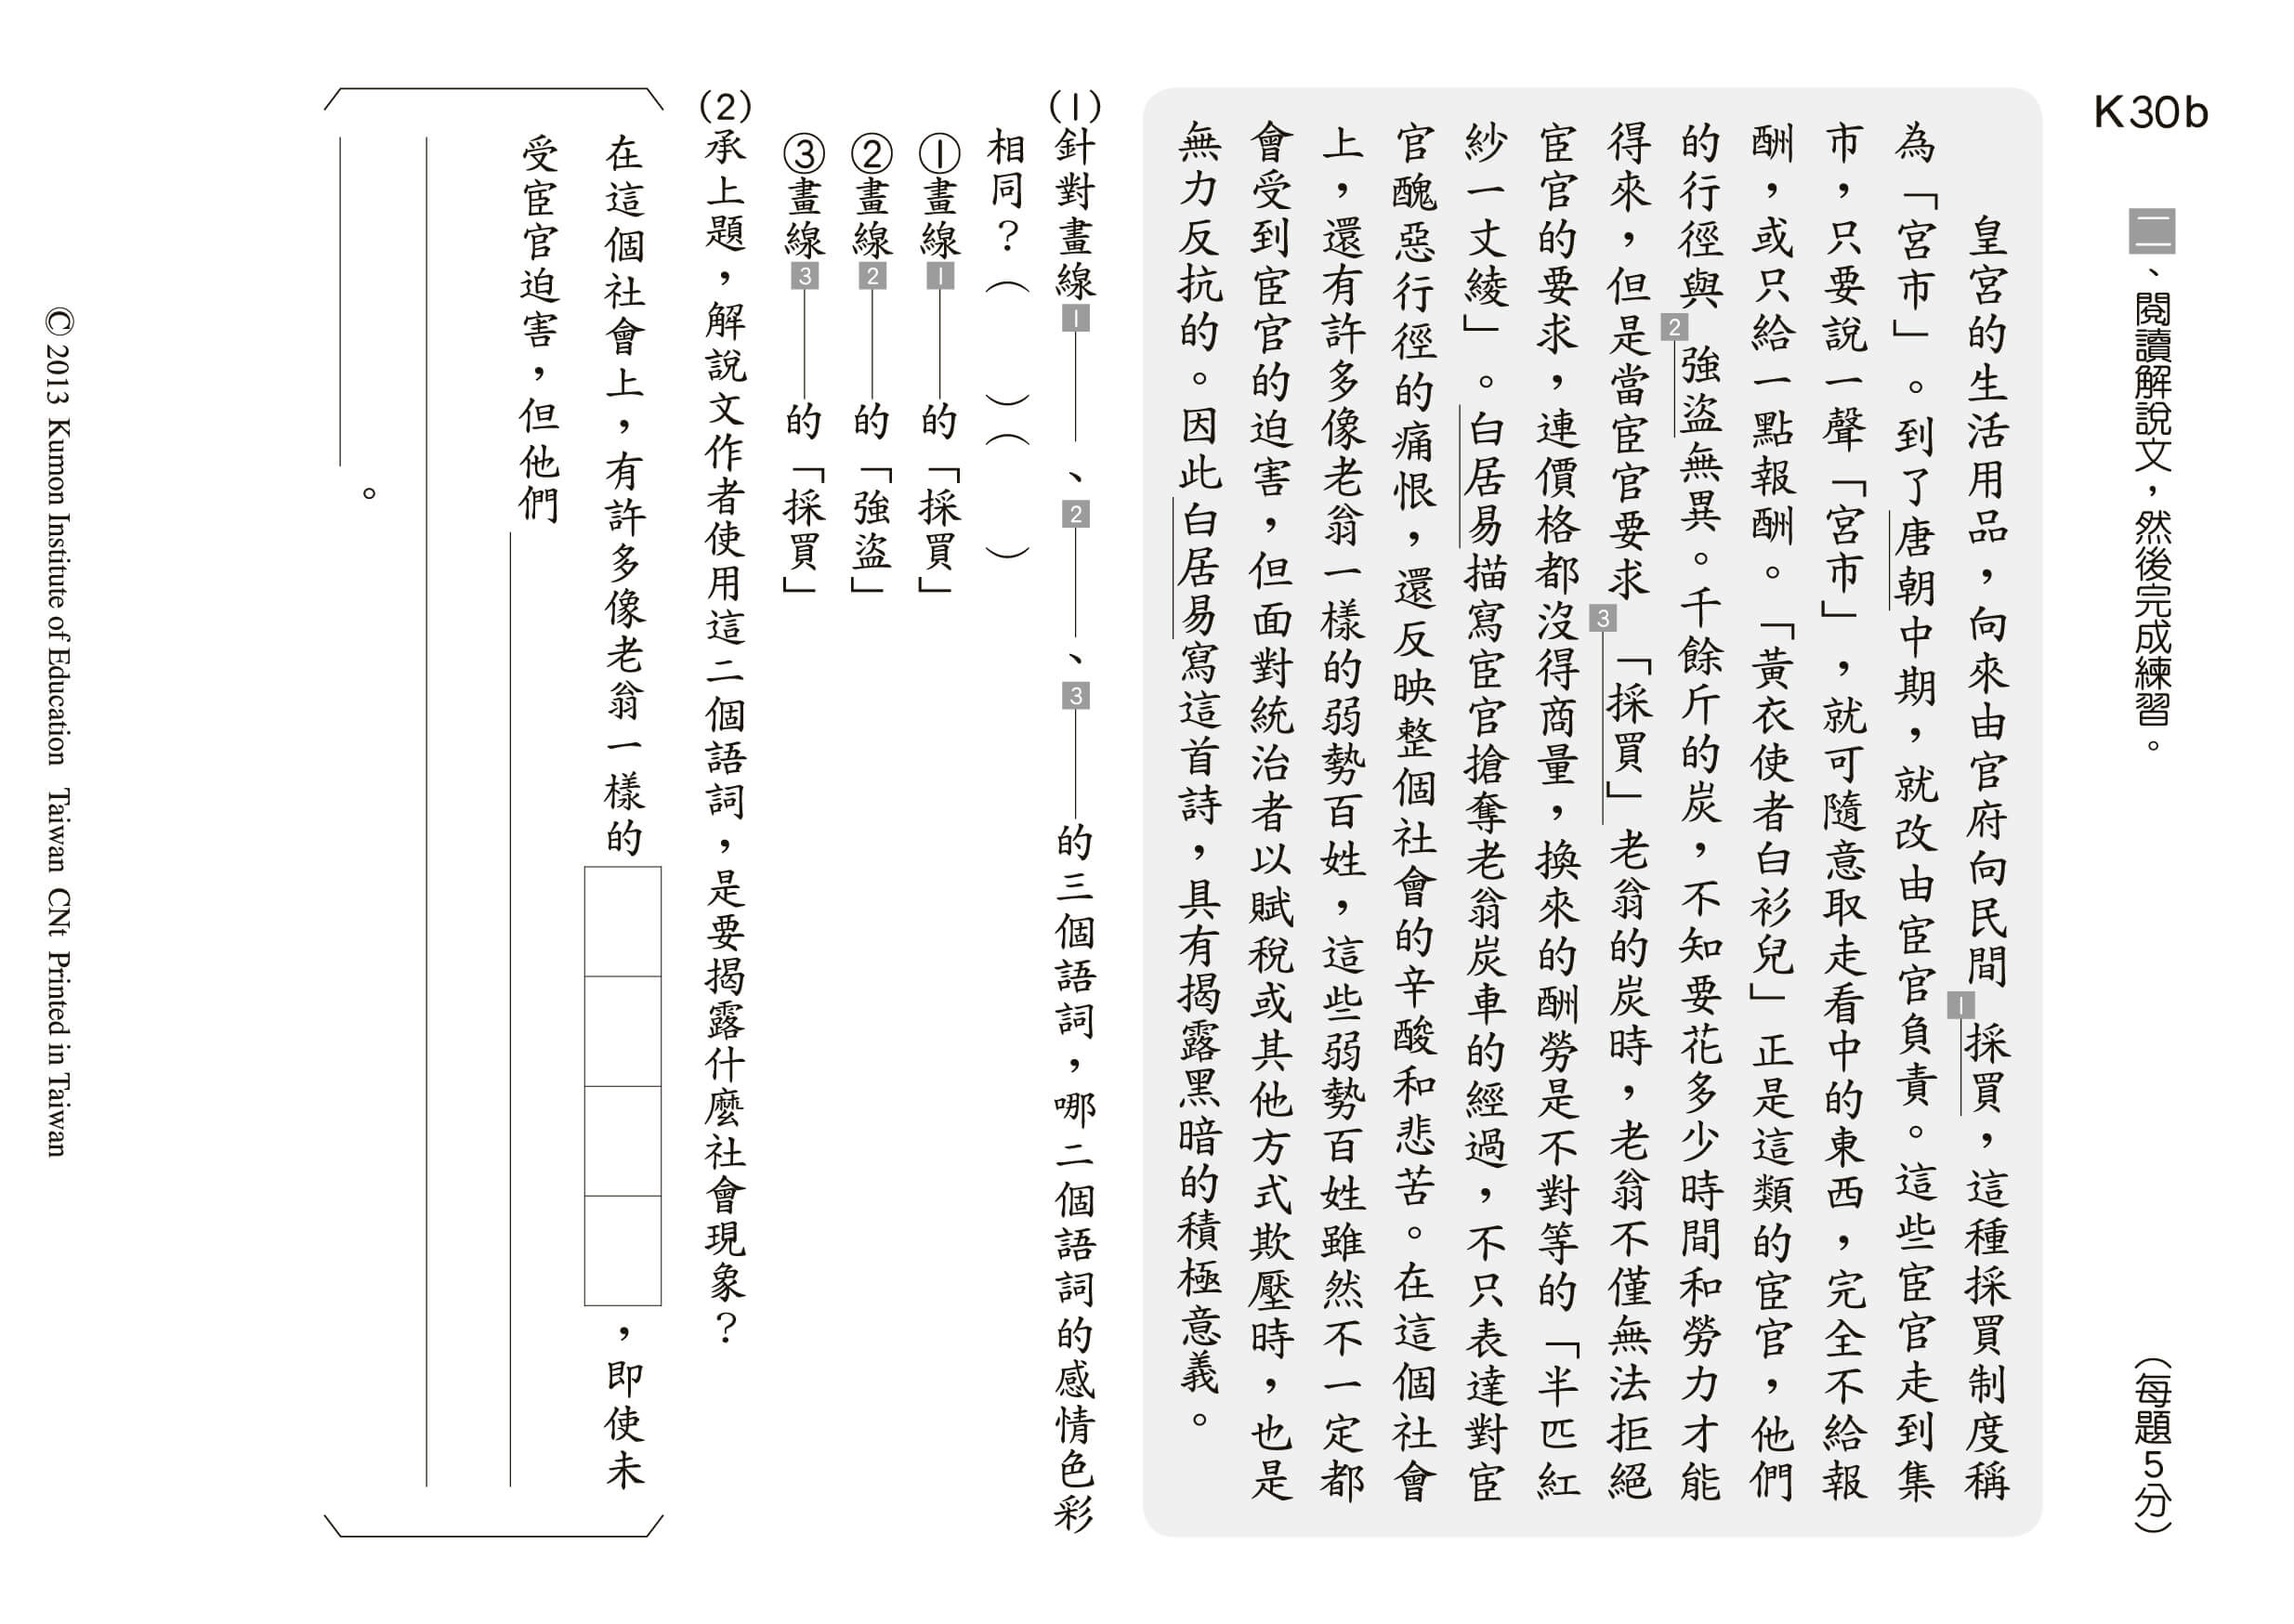 K30b
二、閱讀解說文，然後完成練習。（每題5分）
皇宮的生活用品，向來由官府向民間1採買，這種採買制度稱
為「宮市」。到了唐朝中期，就改由宦官負責。這些宦官走到集
市，只要說一聲「宮市」，就可隨意取走看中的東西，完全不給報
酬，或只給一點報酬。「黃衣使者白衫兒」正是這類的宦官，他們
的行徑與2強盜無異。千餘斤的炭，不知要花多少時間和勞力才能
得來，但是當宦官要求3「採買」老翁的炭時，老翁不僅無法拒絕
宦官的要求，連價格都沒得商量，換來的酬勞是不對等的「半匹紅
紗一丈綾」。白居易描寫宦官搶奪老翁炭車的經過，不只表達對宦
官醜惡行徑的痛恨，還反映整個社會的辛酸和悲苦。在這個社會
上，還有許多像老翁一樣的弱勢百姓，這些弱勢百姓雖然不一定都
會受到宦官的迫害，但面對統治者以賦稅或其他方式欺壓時，也是
無力反抗的。因此白居易寫這首詩，具有揭露黑暗的積極意義。
(1)針對畫線1、2、3的三個語詞，哪二個語詞的感情色彩
相同？（　）（　）
①畫線1的「採買」
②畫線2的「強盜」
③畫線3的「採買」
(2)承上題，解說文作者使用這二個語詞，是要揭露什麼社會現象？
在這個社會上，有許多像老翁一樣的，即使未
受宦官迫害，但他們
。
© 2013 Kumon Institute of Education Taiwan CNt Printed in Taiwan